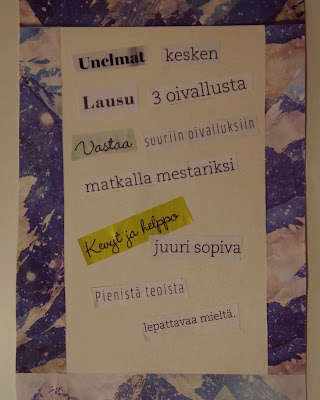 Unelmat kesken
Lausu 3 oivallusta
Vastaa suuriin oivalluksiin
matkalla mestariksi
Kevyt ja helppo
juuri sopiva
Pienistä teoista
lepattavaa mieltä.